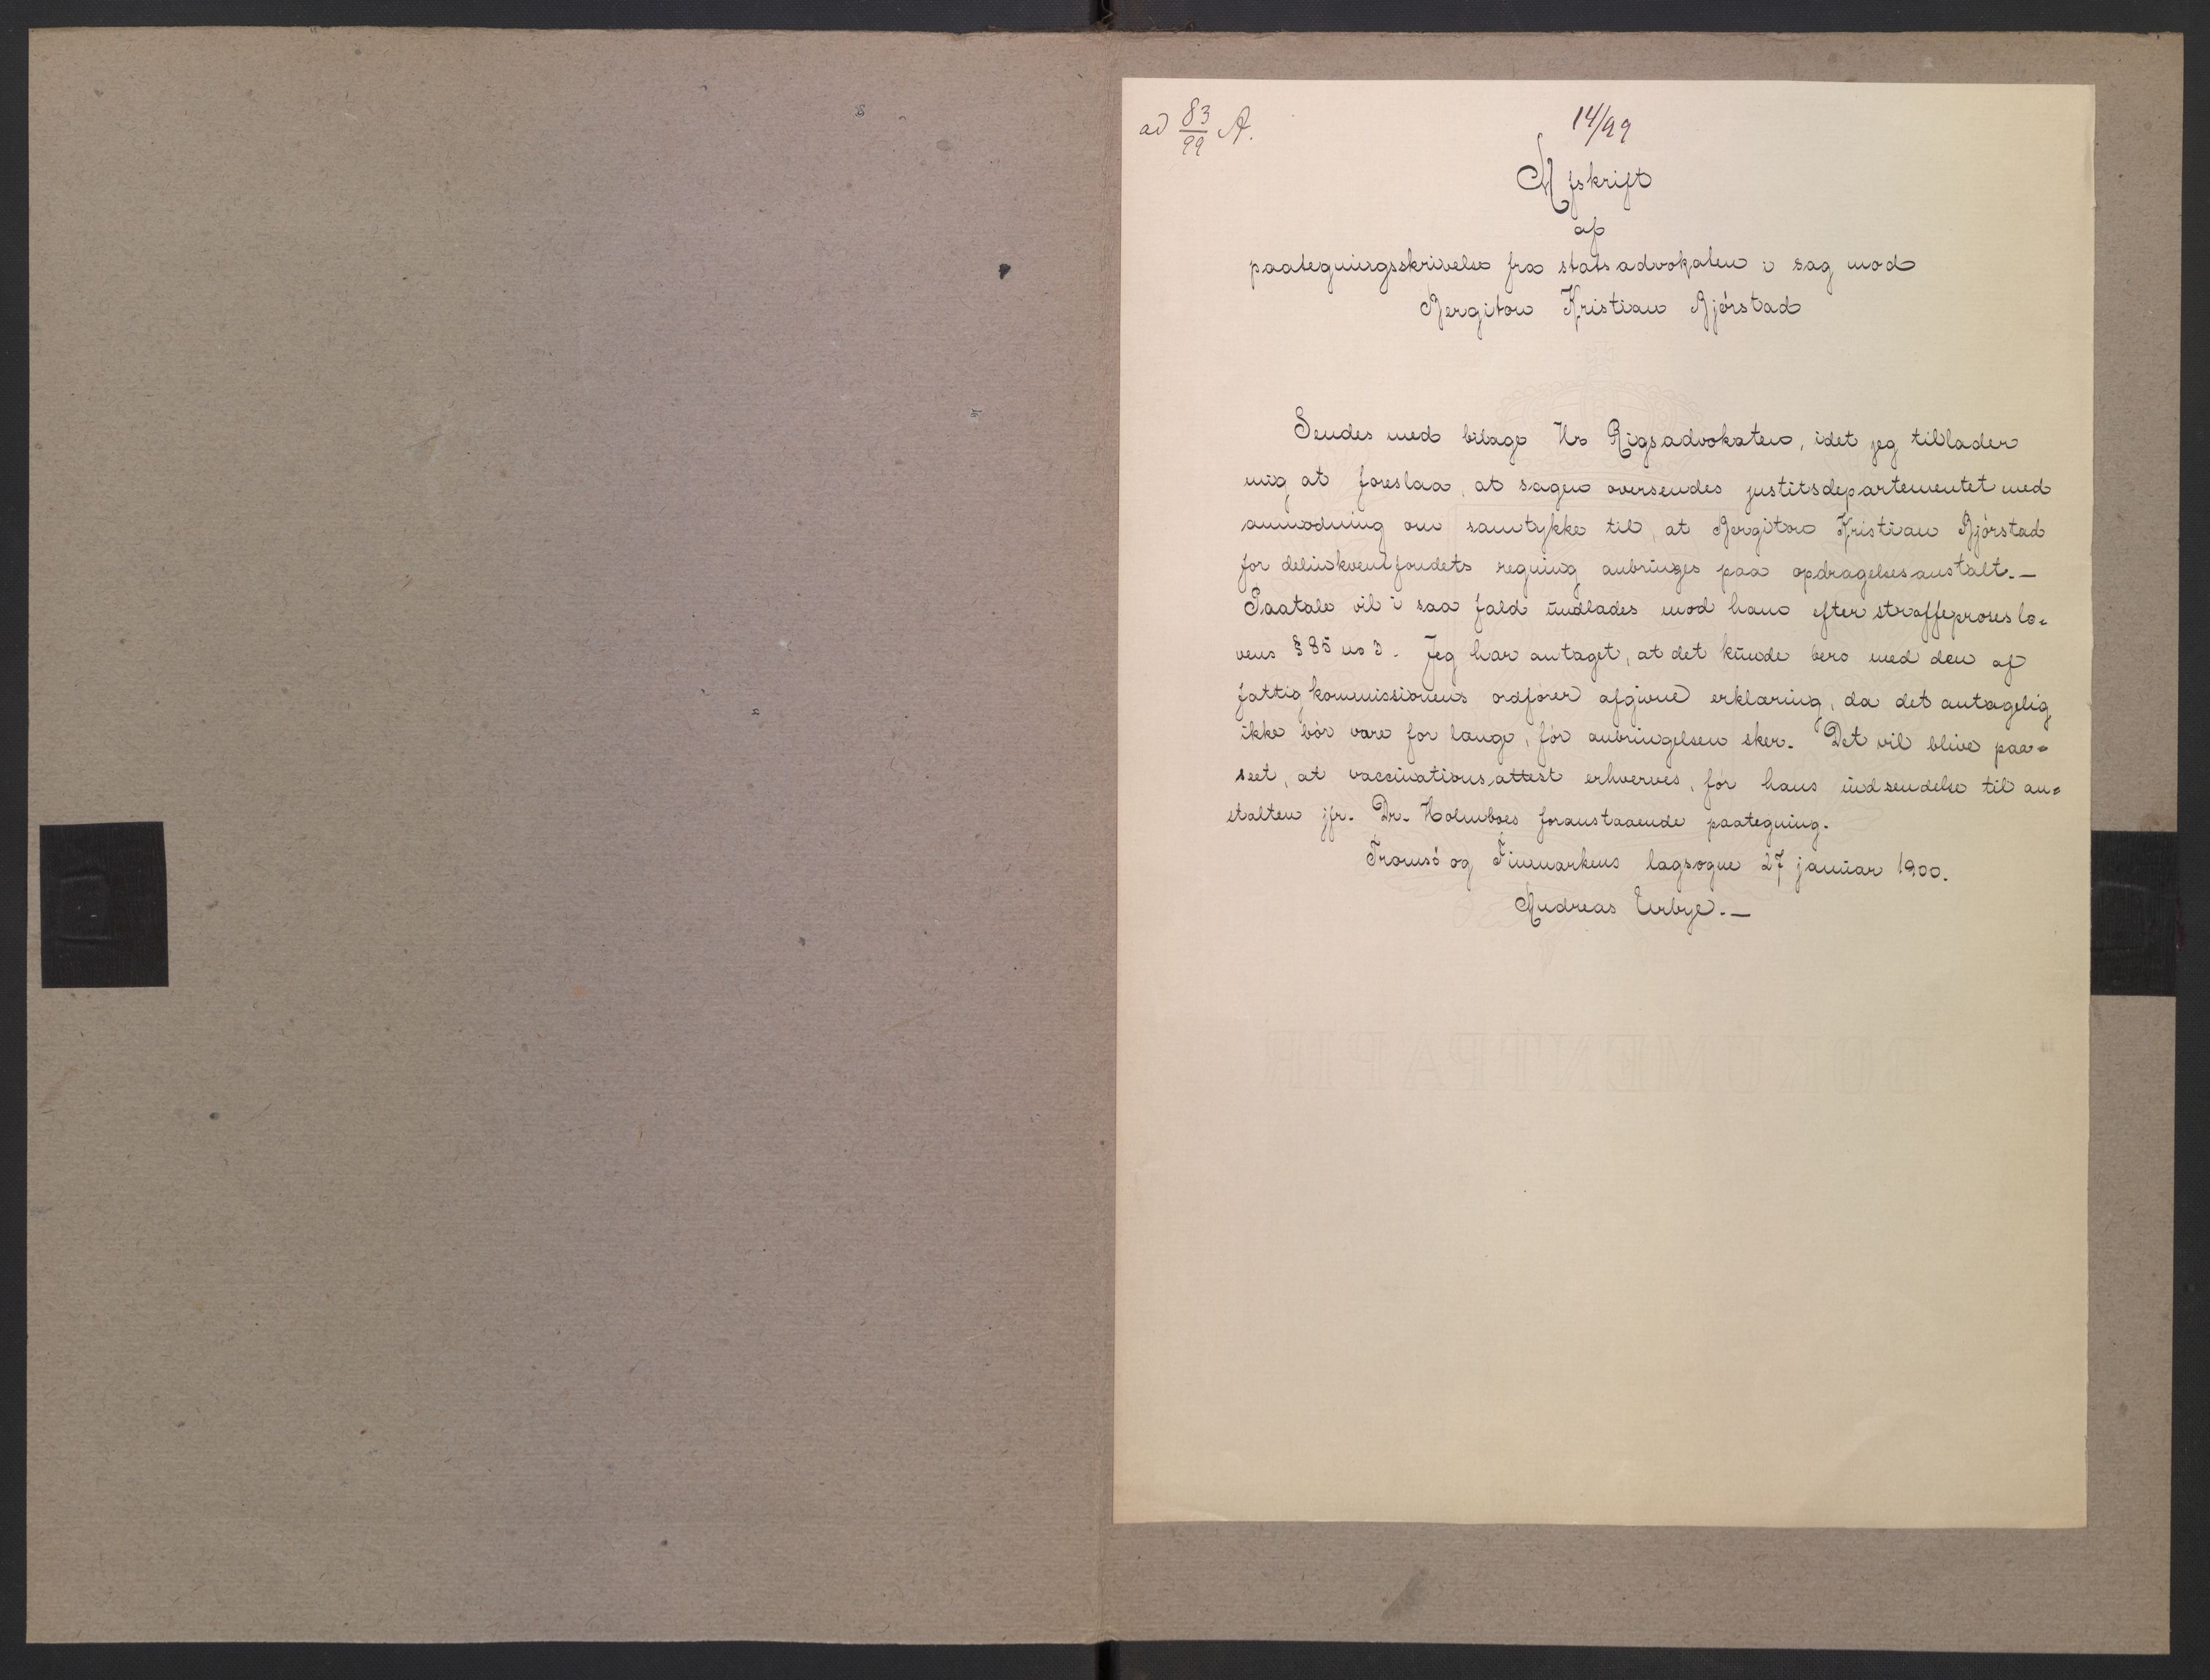 ad 83/99 A.
14/99
Afskrift
af
paategningsskrivelse fra statsadvokaten i sag mod
Bergiton Kristian Bjørstad
Sendes med bilage Hr Rigsadvokaten, idet jeg tillader
mig at foreslaa, at sagen oversendes justitsdepartementet med
anmodning om samtykke til, at Bergiton Kristian Bjørstad
for delinkventfondets regning anbringes paa opdragelsesanstalt. —
Paatale vil i saa fald undlades mod ham efter straffeproseslo=
vens § 85 no 3. Jeg har antaget, at det kunde bero med den af
fattigkommissionens ordfører afgivne erklæring, da det antagelig
ikke bør vare for længe, før anbringelsen sker. Det vil blive paa=
seet, at vaccinationsattest erhverves, før hans indsendelse til an=
stalten jfr. Dr. Holmboes foranstaaende paategning.
Tromsø og Finmarkens lagsogne 27 januar 1900.
Andreas Urbye. —
DOKUMENTPAPIR